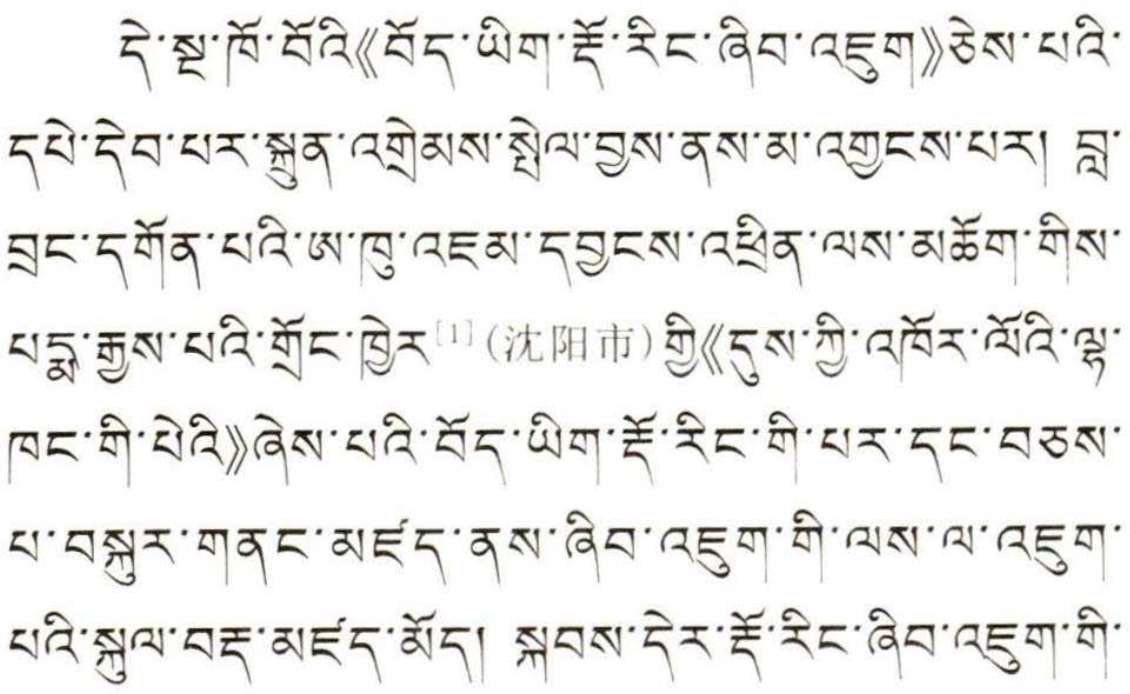 དེ་སྔ་ཁོ་བོའི《བོད་ཡིག་རྡོ་རིང་ཞིབ་འཇུག》ཅེས་པའི་
དཔེ་དེབ་པར་སྐྲུན་འགྲེམས་སྤེལ་བྱས་ནས་མ་འགྱངས་པར། བླ་
བྲང་དགོན་པའི་ཨ་ཁུ་འཇམ་དབྱངས་འཕྲིན་ལས་མཆོག་གིས་
པདྨ་རྒྱས་པའི་གྲོང་ཁྱེར[1](沈阳市)གྱི《དུས་ཀྱི་འཁོར་ལོའི་ལྷ་
ཁང་གི་པེའི》ཞེས་པའི་བོད་ཡིག་རྡོ་རིང་གི་པར་དང་བཅས་
པ་བསྐུར་གནང་མཛད་ནས་ཞིབ་འཇུག་གི་ལས་ལ་འཇུག་
པའི་སྐུལ་བརྡ་མཛད་མོད། སྐབས་དེར་རྡོ་རིང་ཞིབ་འཇུག་གི་